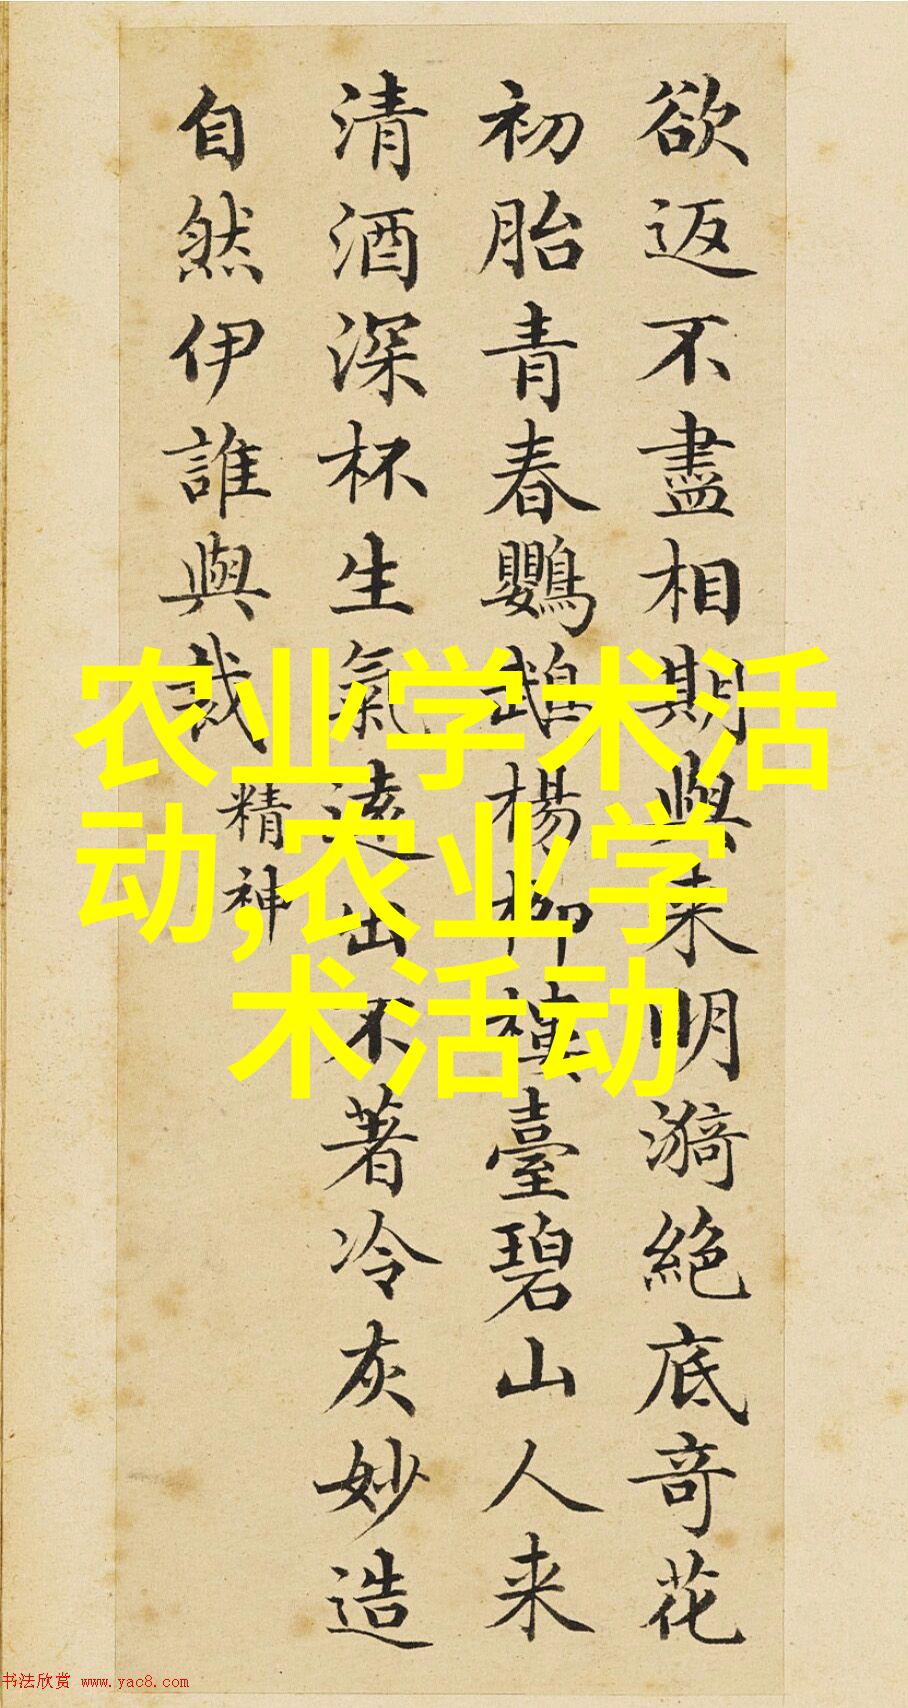 欲返不盡相期與来明漪絶底竒花
初胎青春鸚鵡楊柳樓臺碧山人来
清酒深杯生氣遠出不著冷灰妙造
自然伊誰與裁
精神
农业学术活
动,农业学
术活动
书法欣赏 www.yac8.com